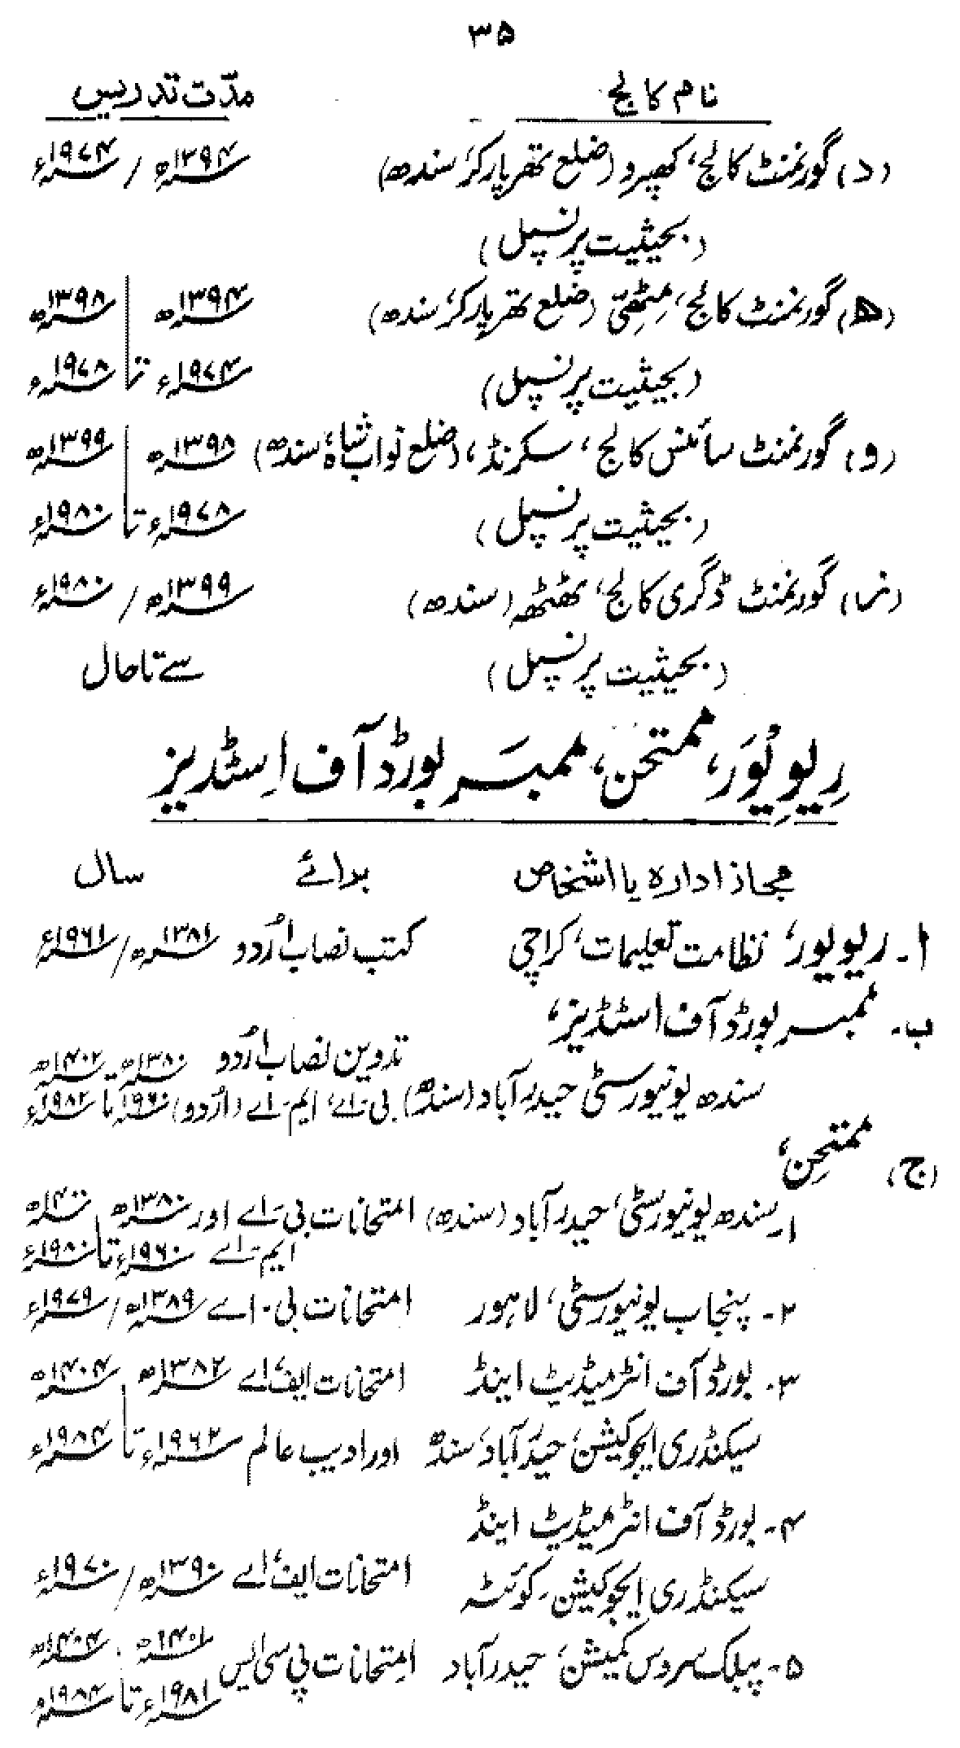 ۳۵
نام کالج مدّت تدریس
(د) گورنمنٹ کالج، کھپرو (ضلع تھرپارکر، سندھ) ۱۳۹۴ھ / ۱۹۷۴ء
(بحیثیت پرنسپل)
(ھ) گورنمنٹ کالج، مٹھی (ضلع تھرپارکر، سندھ) ۱۳۹۴ھ ۱۳۹۸ھ
(بحیثیت پرنسپل) ۱۹۷۴ء تا ۱۹۷۸ء
(و) گورنمنٹ سائنس کالج، سکرنڈ، (ضلع نواب شاہ، سندھ) ۱۳۹۸ھ ۱۳۹۹ھ
(بحیثیت پرنسپل) ۱۹۷۸ء تا ۱۹۸۰ء
(ز) گورنمنٹ ڈگری کالج، ٹھٹھہ (سندھ) ۱۳۹۹ھ / ۱۹۸۰ء
(بحیثیت پرنسپل) سے تاحال
رِیوِیْوَر، ممتحن، ممبر بورڈ آف اسٹڈیز
مجاز ادارہ یا اشخاص برائے سال
ا۔ ریویور، نظامت تعلیمات، کراچی کتب نصاب اُردو ۱۳۸۱ھ / ۱۹۶۱ء
ب۔ ممبر بورڈ آف اسٹڈیز،
تدوین نصاب اُردو ۱۳۸۰ھ ۱۴۰۲ھ
سندھ یونیورسٹی حیدرآباد (سندھ) بی۔اے، ایم۔اے (اُردو) ۱۹۶۰ء تا ۱۹۸۲ء
(ج) ممتحِن،
۱۔ سندھ یونیورسٹی، حیدرآباد (سندھ) امتحانات بی۔اے اور ۱۳۸۰ھ ۱۴۰۰ھ
ایم۔اے ۱۹۶۰ء تا ۱۹۸۰ء
۲۔ پنجاب یونیورسٹی، لاہور امتحانات بی۔اے ۱۳۸۹ھ / ۱۹۷۹ء
۳۔ بورڈ آف انٹرمیڈیٹ اینڈ امتحانات ایف اے ۱۳۸۲ھ ۱۴۰۴ھ
سیکنڈری ایجوکیشن، حیدرآباد، سندھ اور ادیب عالم ۱۹۶۲ء تا ۱۹۸۴ء
۴۔ بورڈ آف انٹرمیڈیٹ اینڈ
سیکنڈری ایجوکیشن، کوئٹہ امتحانات ایف اے ۱۳۹۰ھ / ۱۹۷۰ء
۵۔ پبلک سروس کمیشن، حیدرآباد امتحانات پی سی ایس ۱۴۰۱ھ ۱۴۰۴ھ
۱۹۸۱ء تا ۱۹۸۴ء